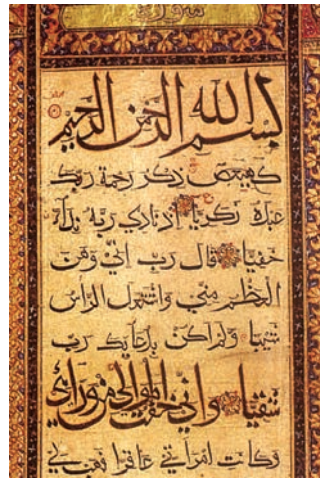 بسم الله الرحمن الرحيم
كهيعص ذكر رحمة ربك
عبده زكريا اذ نادي ربه نداء
خفيا قال رب اني وهن
العظم مني واشتعل الراس
شيبا ولم اكن بدعايك رب
شقيا واني خفت الموالي من وراءي
وكانت امراتي عاقرا فهب لي